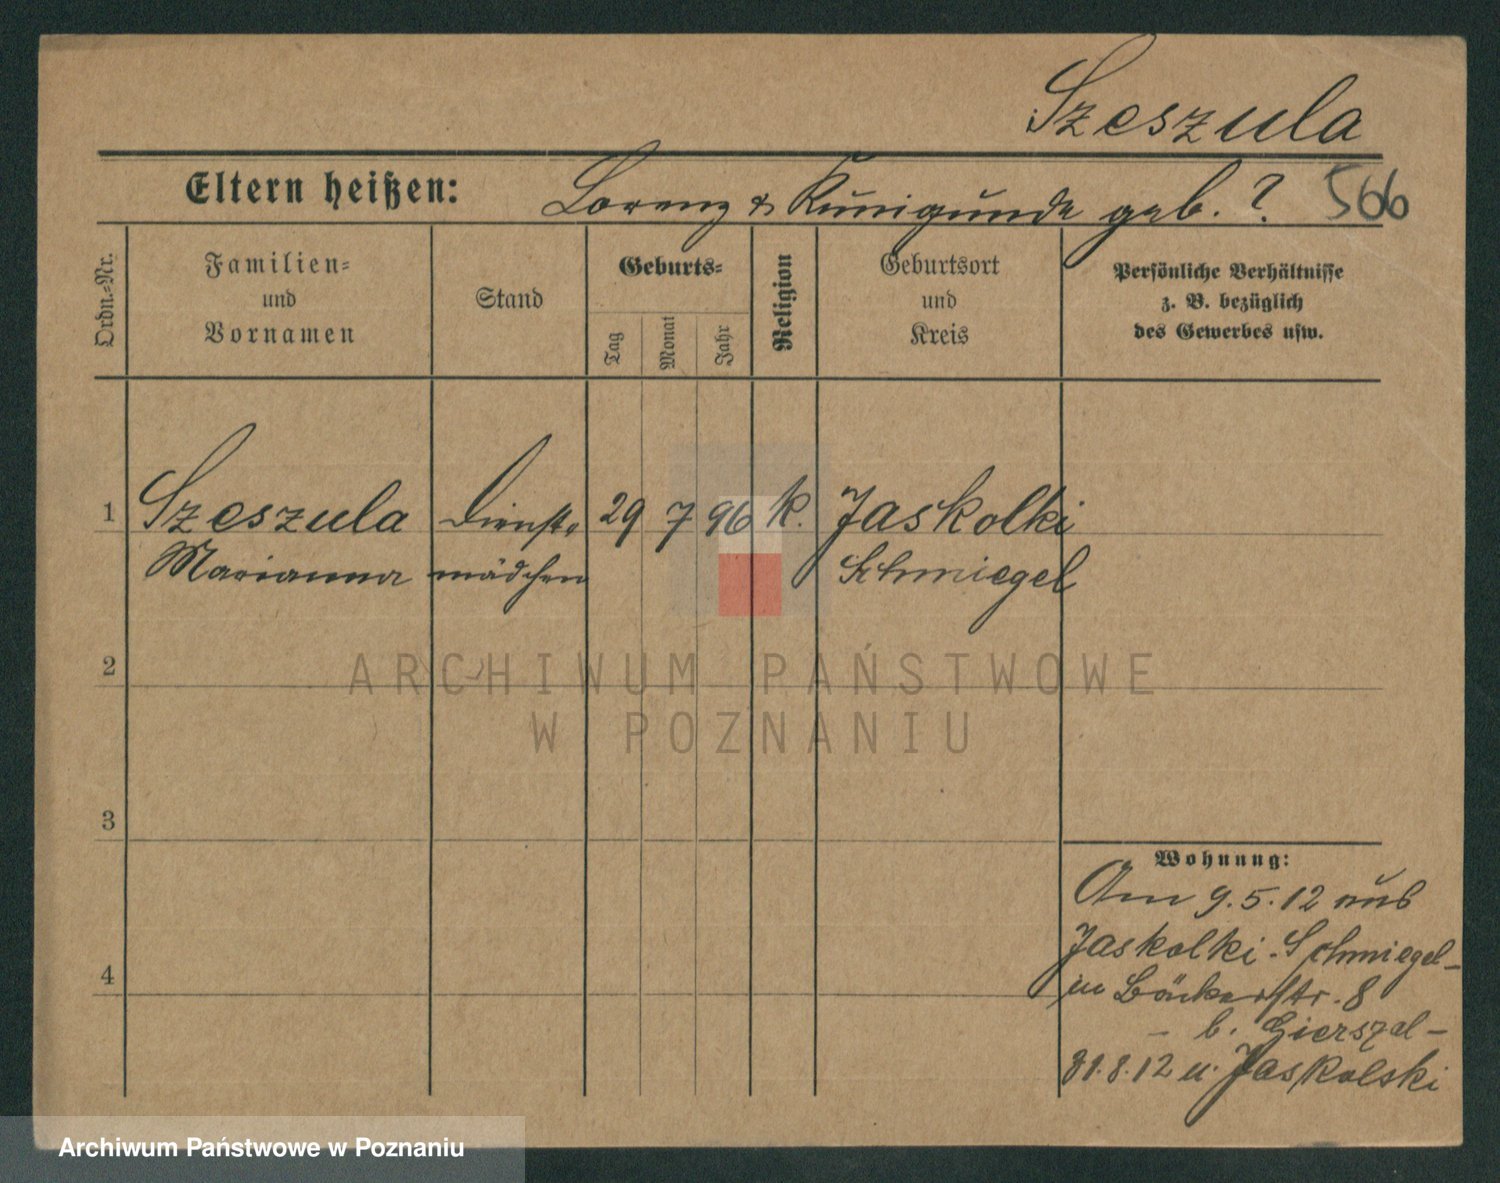 Szeszula
Eltern heißen: Lorenz & Kunigunde geb. ? 566
Ordn.=Nr.
Familien=
und
Vornamen
Stand
Geburts=
Tag
Monat
Jahr
Religion
Geburtsort
und
Kreis
Persönliche Verhältnisse
z. B. bezüglich
des Gewerbes usw.
1 Szeszula Dienst= 29 7 96 k. Jaskolki
Marianna mädchen Schmiegel
2
ARCHIWUM PAŃSTWOWE
W POZNANIU
3
4
Wohnung:
Am 9.5.12 aus
Jaskolki - Schmiegel -
in Bäckerstr. 8
- b. Gierszal -
31.8.12 n. Jaskolski
Archiwum Państwowe w Poznaniu